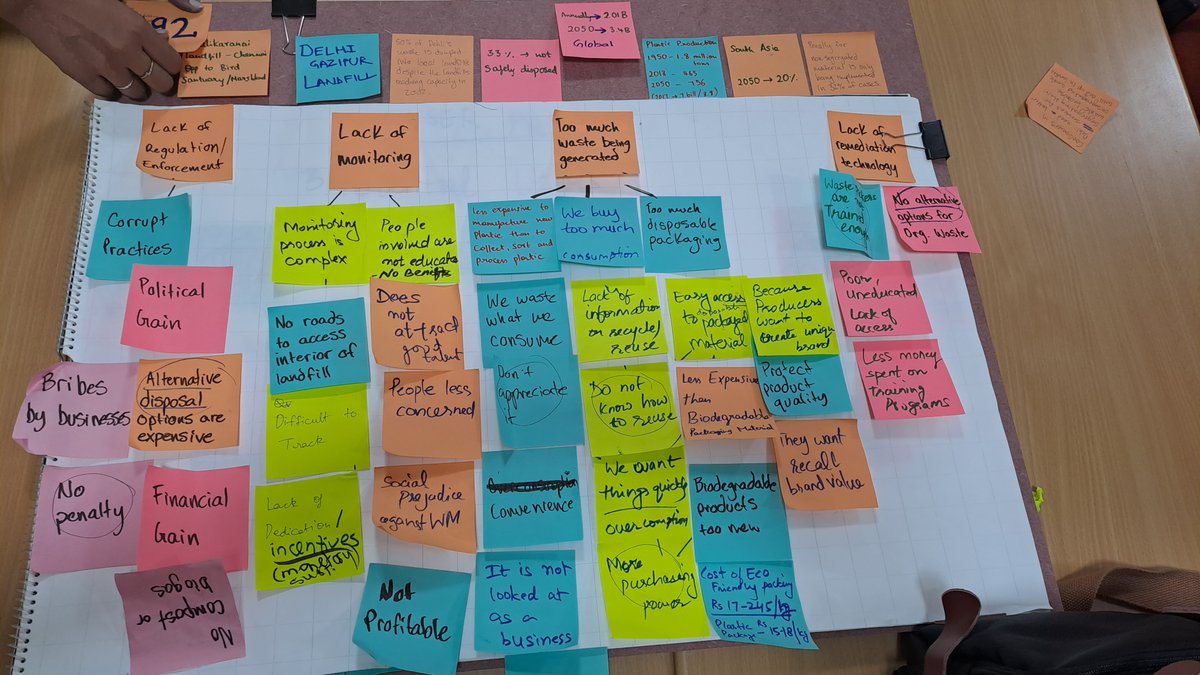 92
Landfill - Chennai
to Bird
Santuary/Marshland
DELHI
GAZIPUR
LANDFILL
50% of Delhi's
waste is dumped
local landfills
despite the landfills
reaching capacity in
33% → not
Safely disposed
Annually → 2.01B
2050 → 3.4B
Global
Plastic Production
1950 - 1.8 million
tons
2018 - 465
South Asia
2050 → 20%
material is only
being implemented
Lack of
Regulation/
Enforcement
Lack of
monitoring
Too much
waste being
generated
Lack of
remediation
technology
Corrupt
Practices
Monitoring
process is
complex
People
involved are
not educate
- No Benefits
Less expensive to
manufacture new
plastic than to
collect, sort and
process plastic
We buy
too much
consumption
Too much
disposable
packaging
Waste
are
Trained
enough
No alternative
options for
Org. Waste
Political
Gain
No roads
to access
interior of
landfill
Does
not
attract
good
talent
We waste
what we
consume
Lack of
information
on recycle/
reuse
Easy access
to disposable
packaged
material
Because
Producers
want to
create unique
brand
Poor,
uneducated
Lack of
access
Bribes
by businesses
Alternative
disposal
options are
expensive
Difficult to
Track
People less
concerned
Don't
appreciate
it
Do not
know how
to reuse
Less Expensive
than
Biodegradable
Packaging Material
Protect
product
quality
Less money
spent on
Training
Programs
No
penalty
Financial
Gain
Lack of
Dedication/
incentives
(monetary
Social
Prejudice
against WM
Convenience
We want
things quickly
over
Biodegradable
products
too new
They want
recall
brand value
No
compost or
biogas
Not
Profitable
It is not
looked at
as a
business
More
purchasing
power
Cost of Eco
Friendly packing
Rs 17-245/kg
Plastic Rs
Package - 15-18/kg